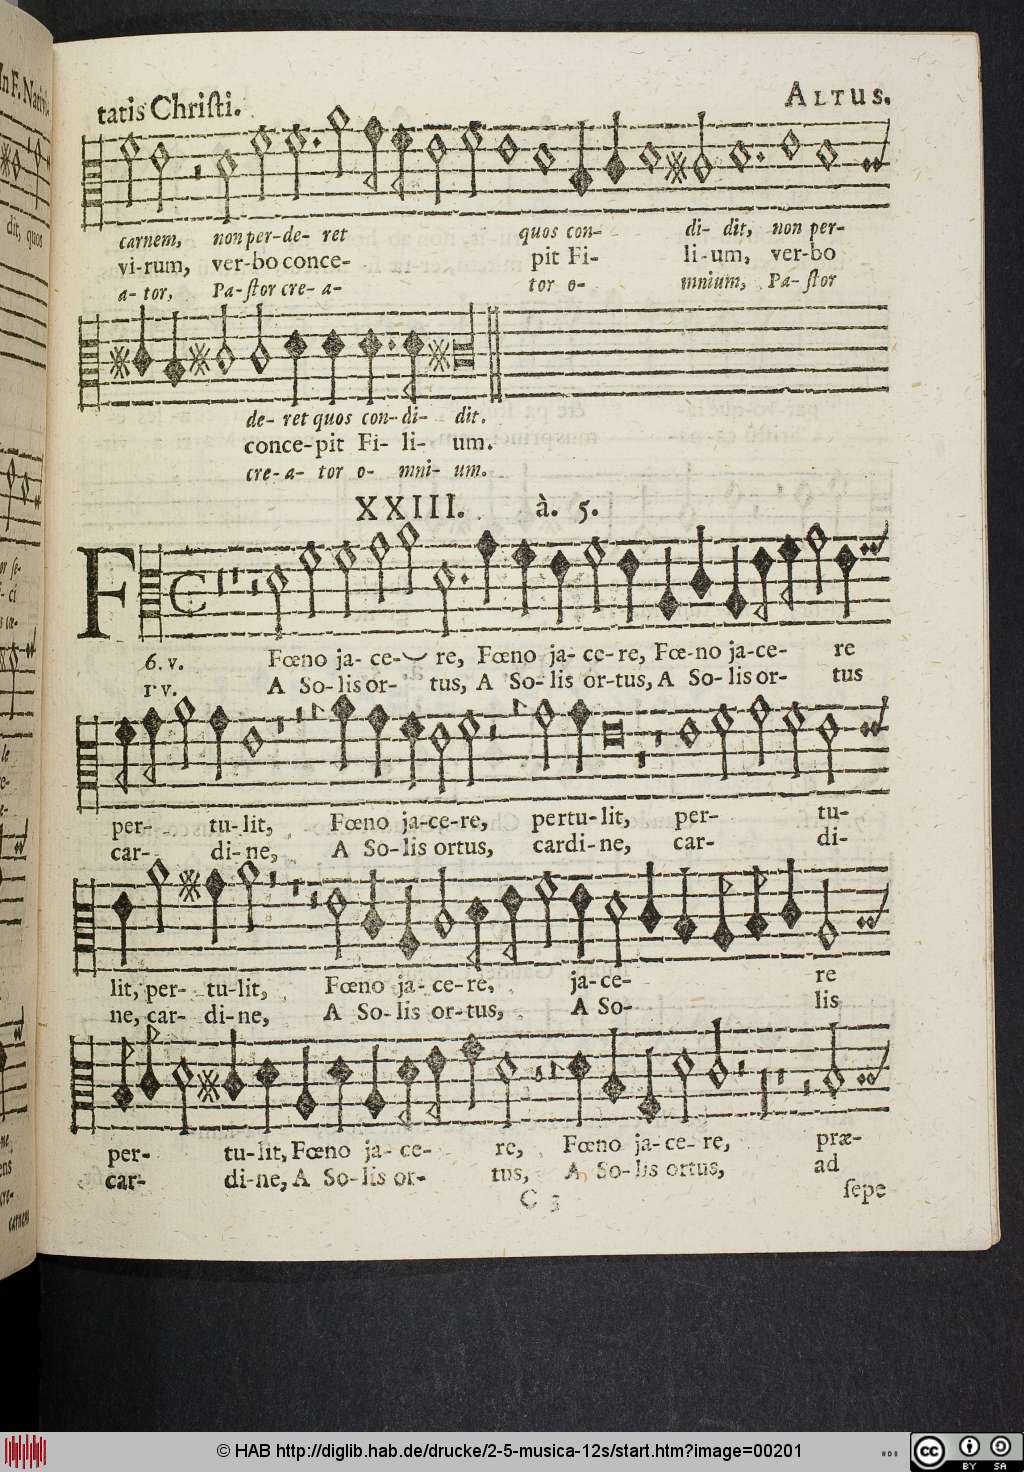 tatis Chriſti.
ALTUS.
carnem, non per-de- ret quos con- di- dit, non per-
vi-rum, ver-bo conce- pit Fi- li-um, ver-bo
a- tor, Pa-ſtor cre- a- tor o- mnium, Pa- ſtor
de- ret quos con-di- dit.
conce-pit Fi- li- um.
cre-a- tor o- mni- um.
XXIII. à. 5.
F
6. v. Fœno ja- ce- re, Fœno ja- ce-re, Fœ-no ja-ce- re
1 v. A So-lis or- tus, A So-lis or-tus, A So-lis or- tus
per- tu-lit, Fœno ja-ce-re, pertu-lit, per- tu-
car- di-ne, A So-lis ortus, cardi-ne, car- di-
lit, per- tu-lit, Fœno ja- ce-re, ja-ce- re
ne, car- di-ne, A So-lis or-tus, A So- lis
per- tu-lit, Fœno ja- ce- re, Fœno ja- ce- re, præ-
car- di-ne, A So-lis or- tus, A So-lis ortus, ad
C 3
ſepe
In F. Nativi-
dit, quos
© HAB http://diglib.hab.de/drucke/2-5-musica-12s/start.htm?image=00201
cc
BY SA